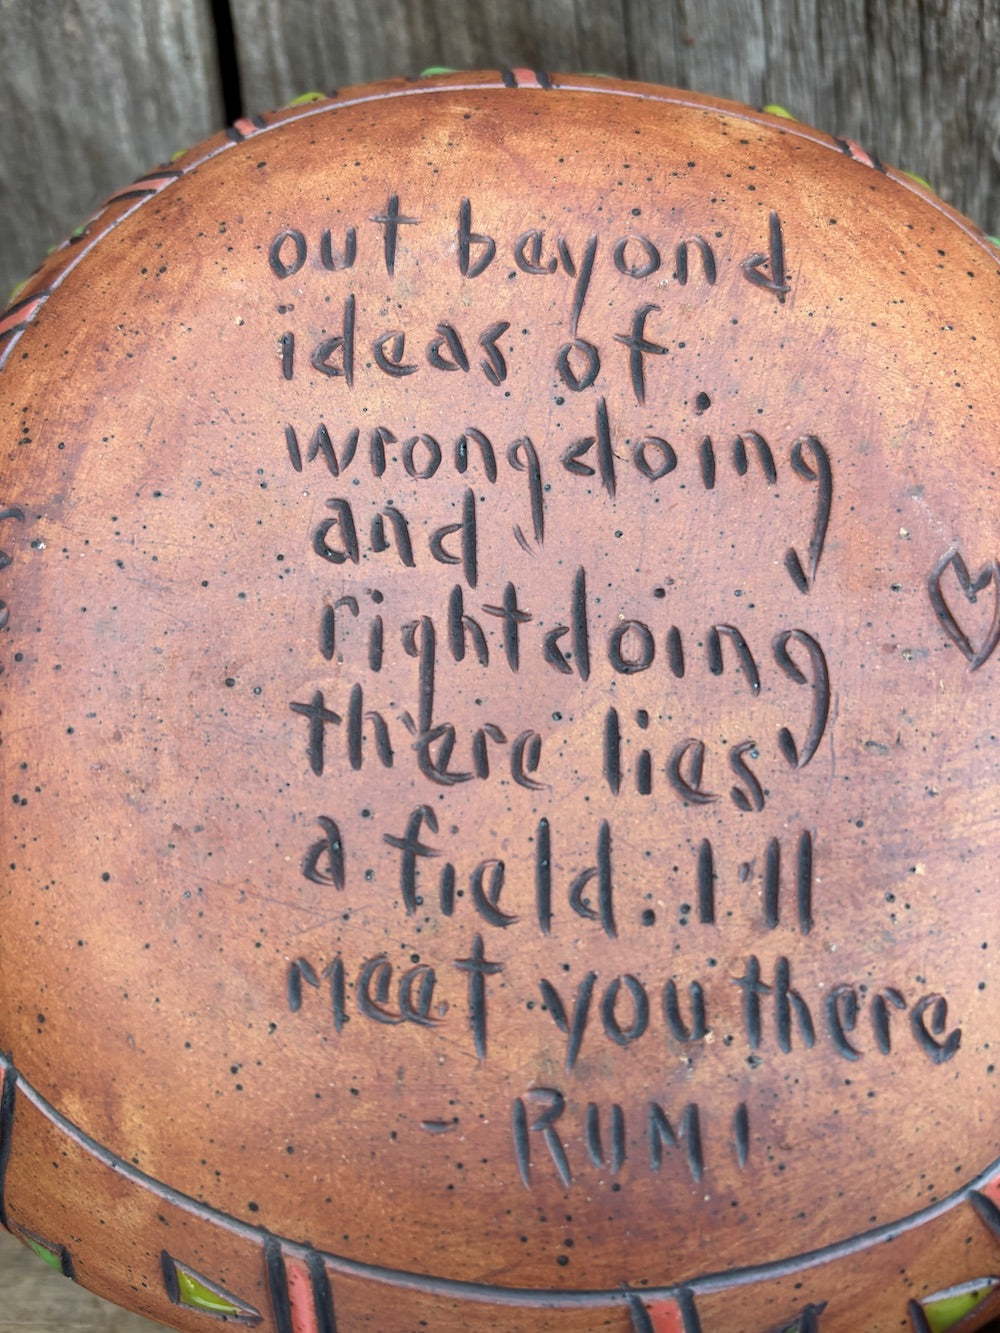 out beyond
ideas of
wrongdoing
and
rightdoing
there lies
a field. I'll
meet you there
- RUMI